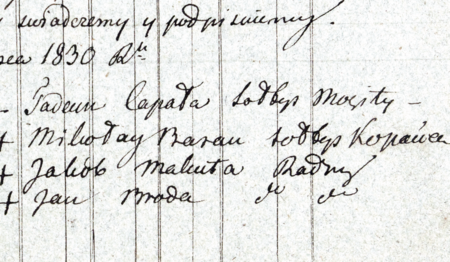 świadczemy y podpisuiemy.
1830 Ru
– Tadeusz Capała sołtys Mosty –
+ Mikołay Baran sołtys Kopaiwka
+ Jakób Makuta Radny
+ Jan Broda do do